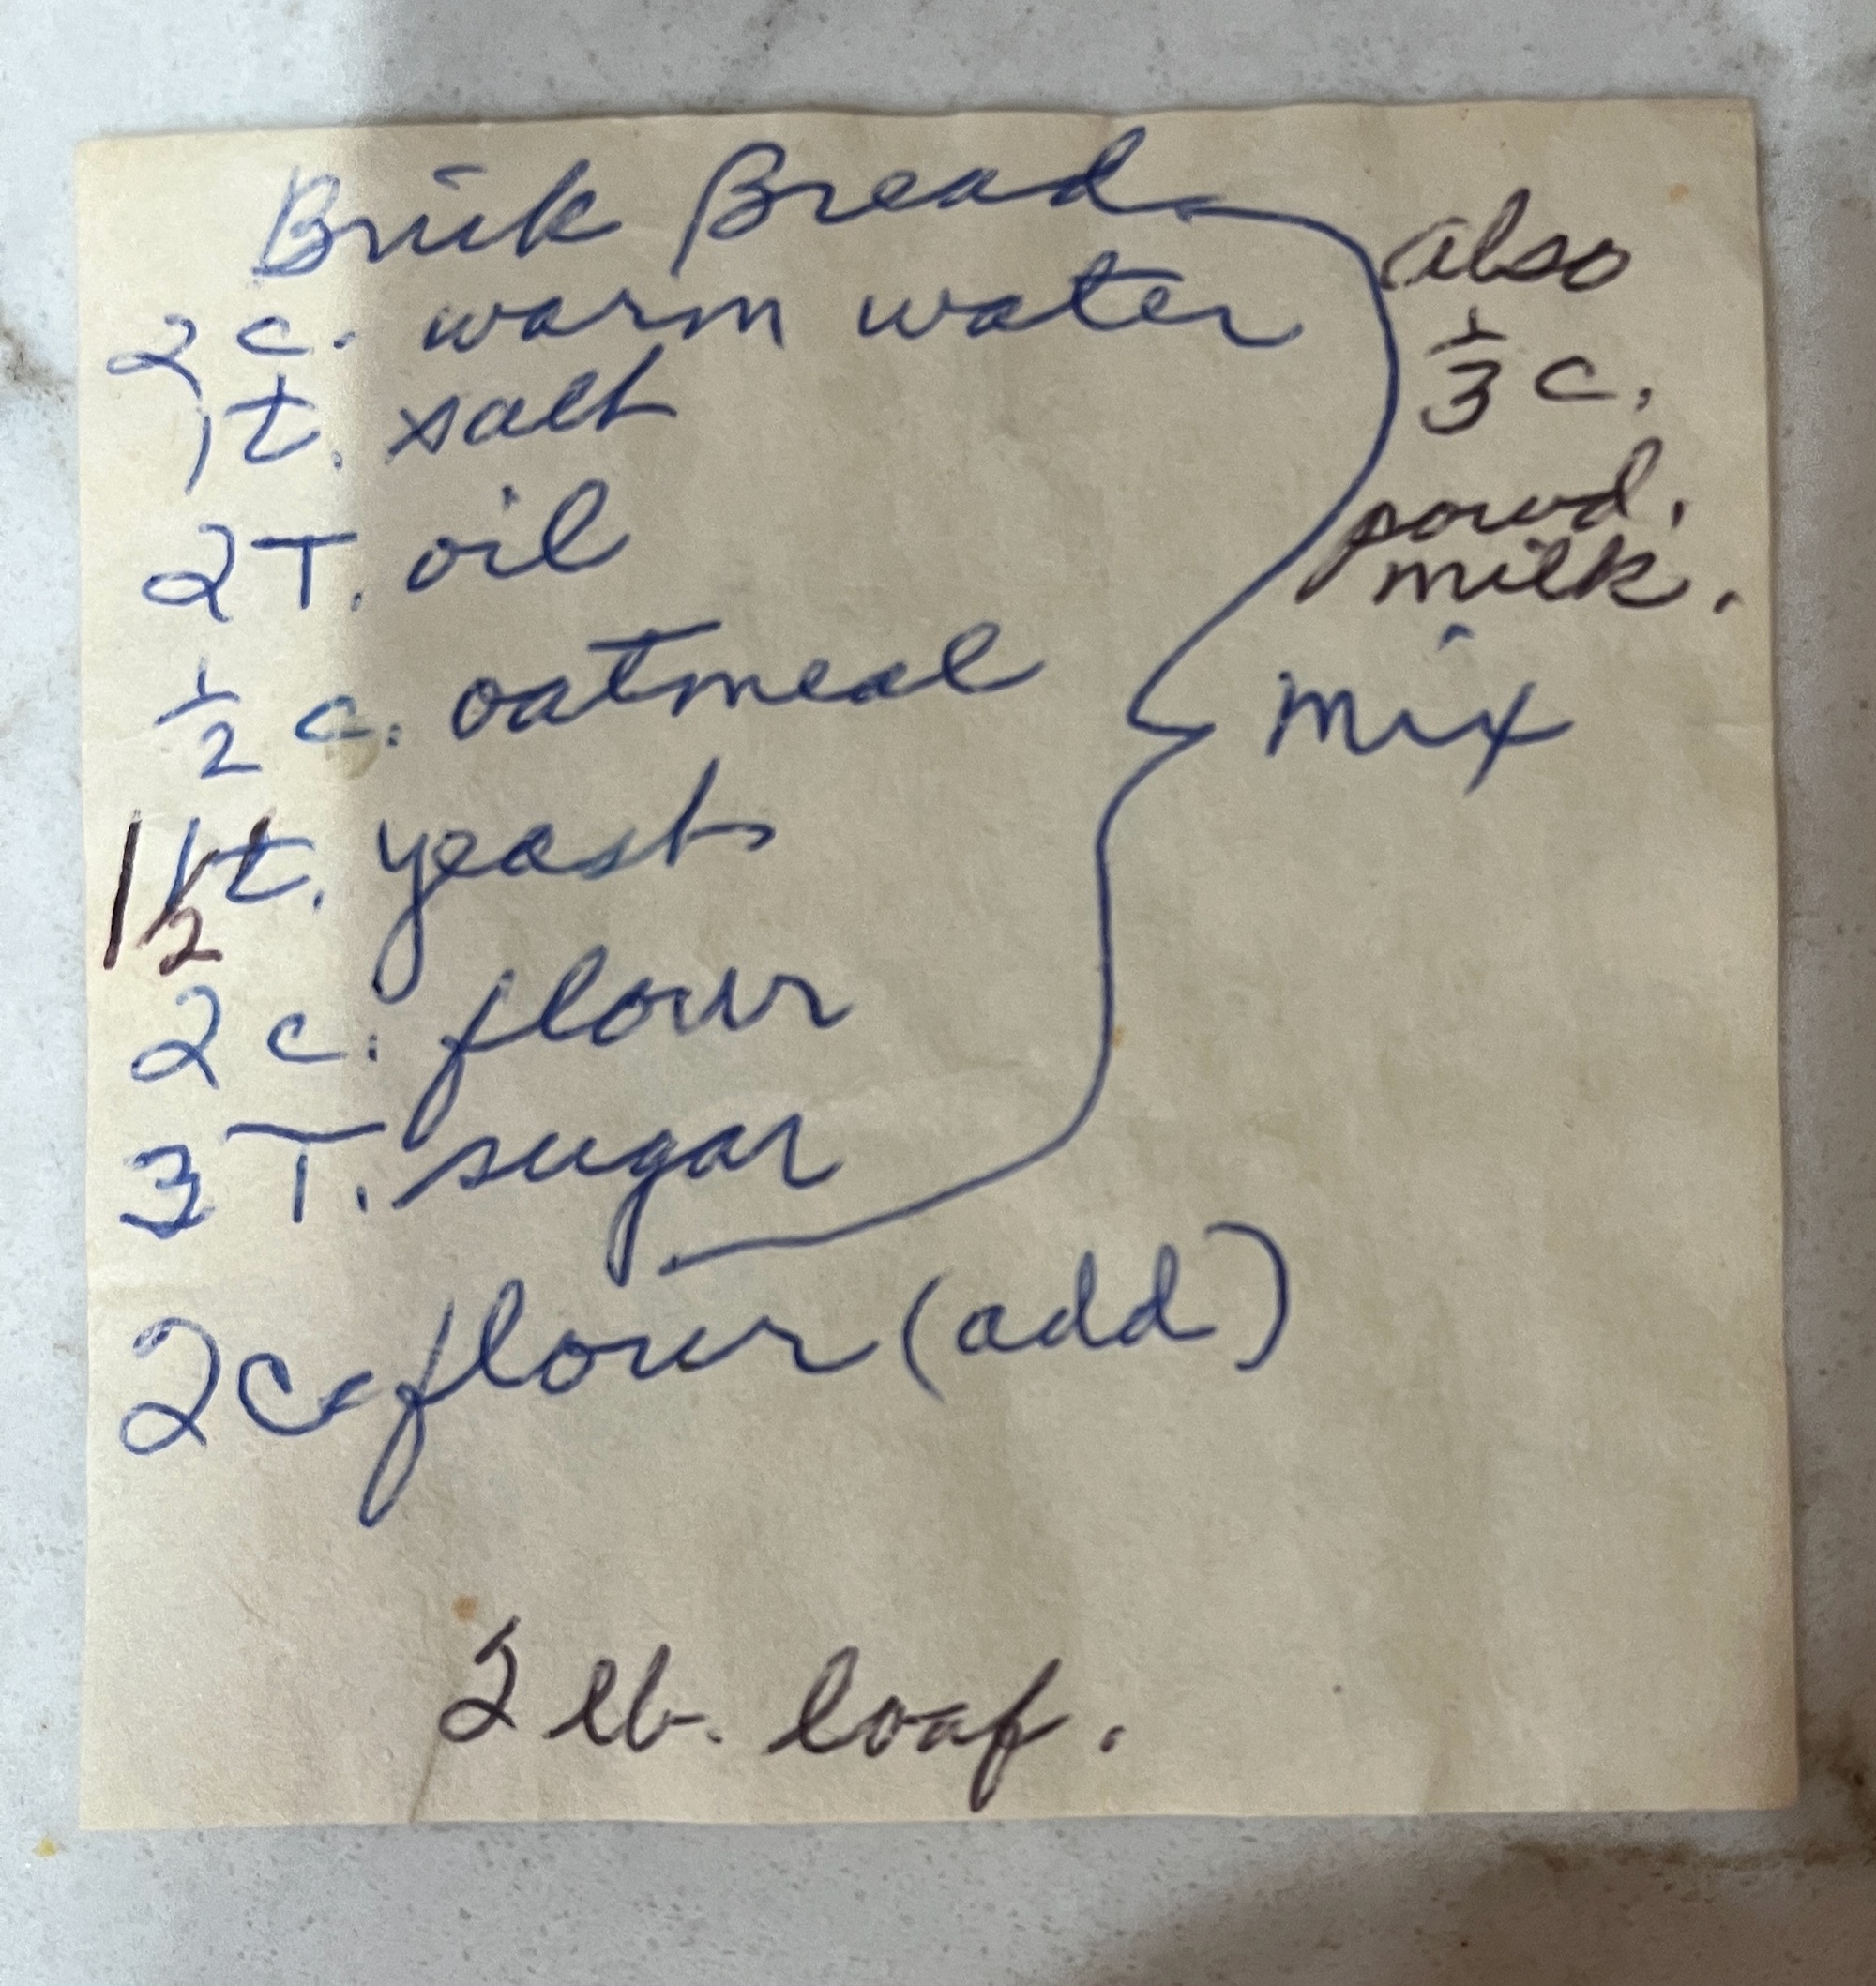 Brick Bread
2 c. warm water
1 t. salt
2 T. oil
1/2 c. oatmeal
1 1/2 t. yeast
2 c. flour
3 T. sugar
2 c. flour (add)
also
1/3 c.
powd.
milk.
mix
2 lb. loaf.